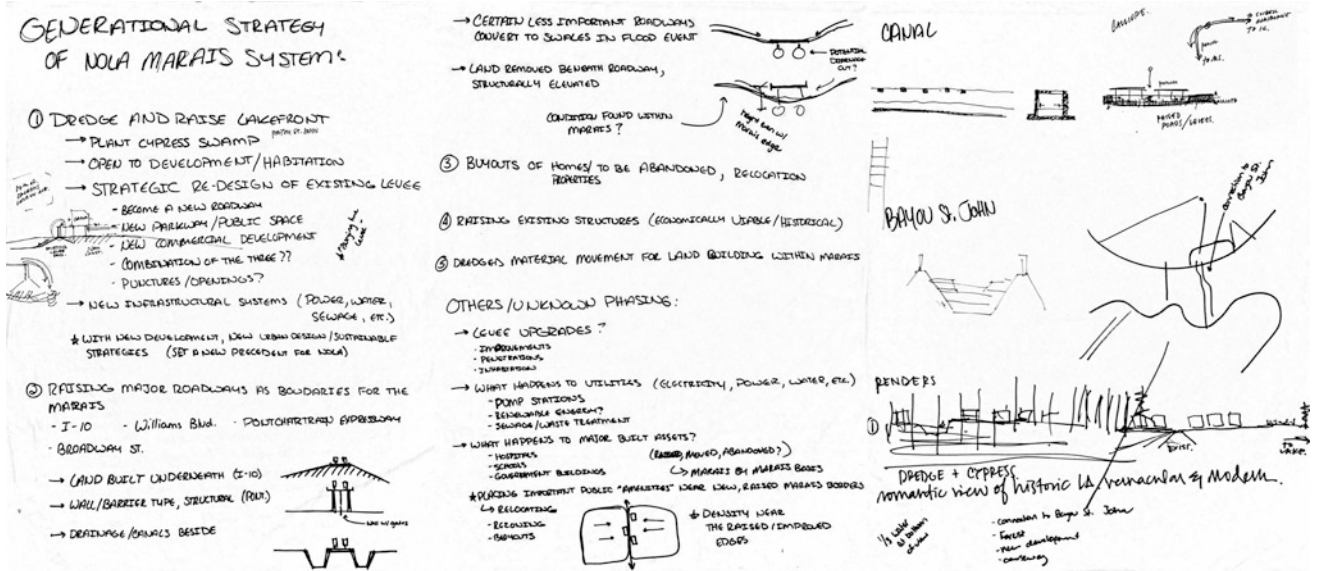 GENERATIONAL STRATEGY
OF NOLA MARAIS SYSTEM:
① DREDGE AND RAISE LAKEFRONT
→ PLANT CYPRESS SWAMP
→ OPEN TO DEVELOPMENT/HABITATION
→ STRATEGIC RE-DESIGN OF EXISTING LEVEE
- BECOME A NEW ROADWAY
- NEW PARKWAY/PUBLIC SPACE
- NEW COMMERCIAL DEVELOPMENT
- COMBINATION OF THE THREE??
- PUNCTURES/OPENINGS?
→ NEW INFRASTRUCTURAL SYSTEMS (POWER, WATER,
SEWAGE, ETC.)
* WITH NEW DEVELOPMENT, NEW URBAN DESIGN/SUSTAINABLE
STRATEGIES (SET A NEW PRECEDENT FOR NOLA)
② RAISING MAJOR ROADWAYS AS BOUNDARIES FOR THE
MARAIS
- I-10 - Williams Blvd. - PONTCHARTRAIN EXPRESSWAY
- BROADWAY ST.
→ LAND BUILT UNDERNEATH (I-10)
→ WALL/BARRIER TYPE, STRUCTURAL (PONT.)
→ DRAINAGE/CANALS BESIDE
→ CERTAIN LESS IMPORTANT ROADWAYS
CONVERT TO SWALES IN FLOOD EVENT
POTENTIAL
DRAINAGE
OUT?
→ LAND REMOVED BENEATH ROADWAY,
STRUCTURALLY ELEVATED
CONDITION FOUND WITHIN
MARAIS?
③ BUYOUTS OF HOMES/ TO BE ABANDONED, RELOCATION
PROPERTIES
④ RAISING EXISTING STRUCTURES (ECONOMICALLY VIABLE/HISTORICAL)
⑤ DREDGED MATERIAL MOVEMENT FOR LAND BUILDING WITHIN MARAIS
OTHERS/UNKNOWN PHASING:
→ LEVEE UPGRADES?
- IMPROVEMENTS
- PENETRATIONS
- INHABITATION
→ WHAT HAPPENS TO UTILITIES (ELECTRICITY, POWER, WATER, ETC.)
- PUMP STATIONS
- RENEWABLE ENERGY?
- SEWAGE/WASTE TREATMENT
→ WHAT HAPPENS TO MAJOR BUILT ASSETS?
- HOSPITALS (RAISED, MOVED, ABANDONED?)
- SCHOOLS
- GOVERNMENT BUILDINGS ↳ MARAIS BY MARAIS BASIS
* PLACING IMPORTANT PUBLIC "AMENITIES" NEAR NEW, RAISED MARAIS BORDERS
↳ RELOCATING
- REZONING
- BUYOUTS
* DENSITY NEAR
THE RAISED/IMPROVED
EDGES
CANAL
CALLIOPE.
RAISED
ROADS/LEVEES.
BAYOU St. JOHN
connection to
Bayou St.
John
RENDERS
①
EXIST.
LAKE.
DREDGE + CYPRESS
romantic view of historic LA vernacular & modern.
- connection to Bayou St. John
- Forest
- new development
- causeway